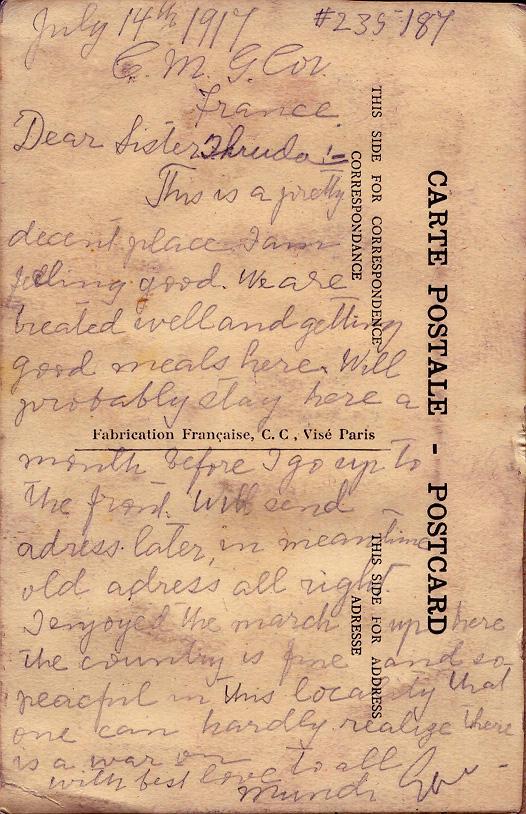 July 14th 1917 #235187
C. M. G. Cor.
France.
Dear Sister Thruda:-
This is a pretty
decent place I am
feeling good. We are
treated well and getting
good meals here. Will
probably stay here a
month before I go up to
the front. Will send
adress later, in meantime
old adress all right.
I enjoyed the march up here
the country is fine and so
peacful in this locality that
one can hardly realize there
is a war on
with best love to all
CARTE POSTALE - POSTCARD
THIS SIDE FOR CORRESPONDENCE
CORRESPONDANCE
Fabrication Française, C. C , Visé Paris
THIS SIDE FOR ADDRESS
ADRESSE